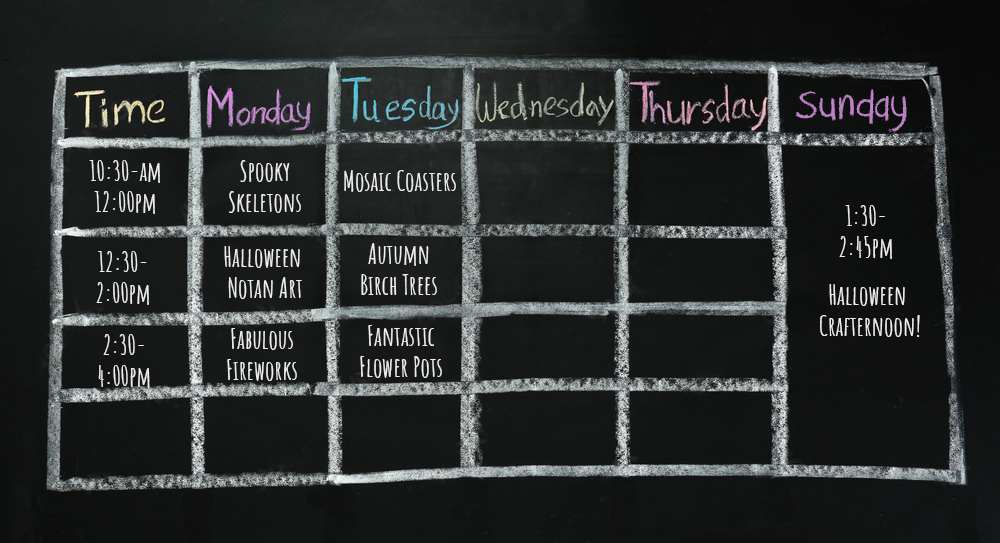 Time Monday Tuesday Wednesday Thursday Sunday
10:30-AM
12:00PM
Spooky
Skeletons
Mosaic Coasters
12:30-
2:00PM
Halloween
Notan Art
Autumn
Birch Trees
2:30-
4:00PM
Fabulous
Fireworks
Fantastic
Flower Pots
1:30-
2:45PM
Halloween
Crafternoon!